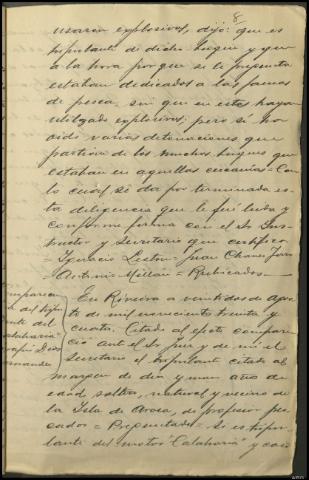 8
usaran explosivos, dijo: que es
tripulante de dicho buque y que
a la hora porque se le pregunta
estaban dedicados a las faenas
de pesca, sin que en estas hayan
utilizado explosivos; pero si ha
oido varias detonaciones que
partían de los muchos buques que
estaban en aquellas cercanías = Con
lo cual se da por terminada es-
ta diligencia que le fué leida y
conforme firma con el Sr. Ins-
tructor y Secretario que certifico
= Ignacio = Juan
= Antonio Millán = Rubricados
comparecen
cia del tripu
lante del
"Calaharia"
En Riveira a veintidos de Agos-
to de mil novecientos treinta y
cuatro. Citado al efecto compare-
ció ante el Sr. Juez y de mí el
Secretario el tripulante citado al
margen de diez y nueve años de
edad, soltero, natural y vecino de
la Isla de Arosa, de profesión pes-
cador = Preguntado = Si es tripu-
lante del motor "Calaharia" y caso